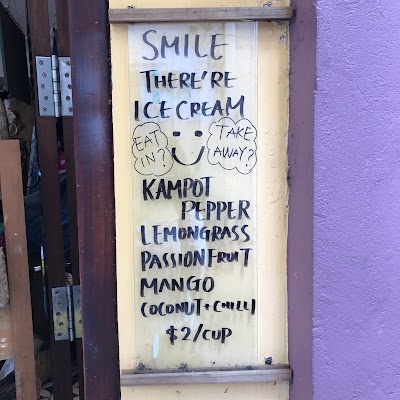 SMILE
THERE'RE
ICE CREAM
EAT
IN?
TAKE
AWAY?
KAMPOT
PEPPER
LEMONGRASS
PASSIONFRUIT
MANGO
COCONUT + CHILLI
$2/CUP